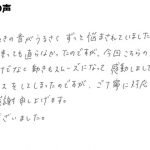 の声
きの音がうるさく ずっと悩まされていました
っても直らなかったのですが、今回こちらの
けでなく動きもスムーズになって感動しました
スをしてしまったのですが、ご丁寧に対応
謝申し上げます。
ざいました。